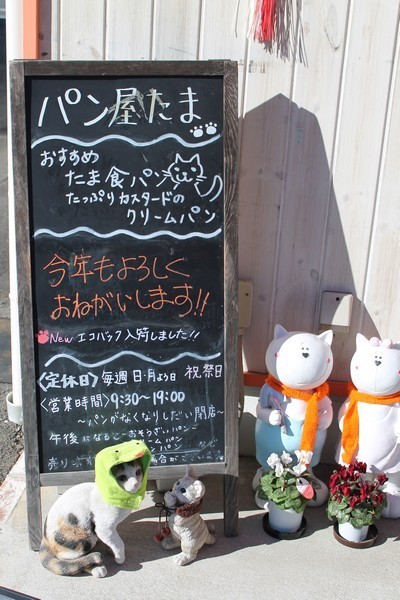 パン屋たま
おすすめ
たま食パン
たっぷりカスタードの
クリームパン
今年もよろしく
おねがいします!!
New エコバック入荷しました!!
〈定休日〉毎週日・月より 祝祭日
〈営業時間〉9:30~19:00
~パンがなくなりしだい閉店~
午後になるとーおそうざいパン